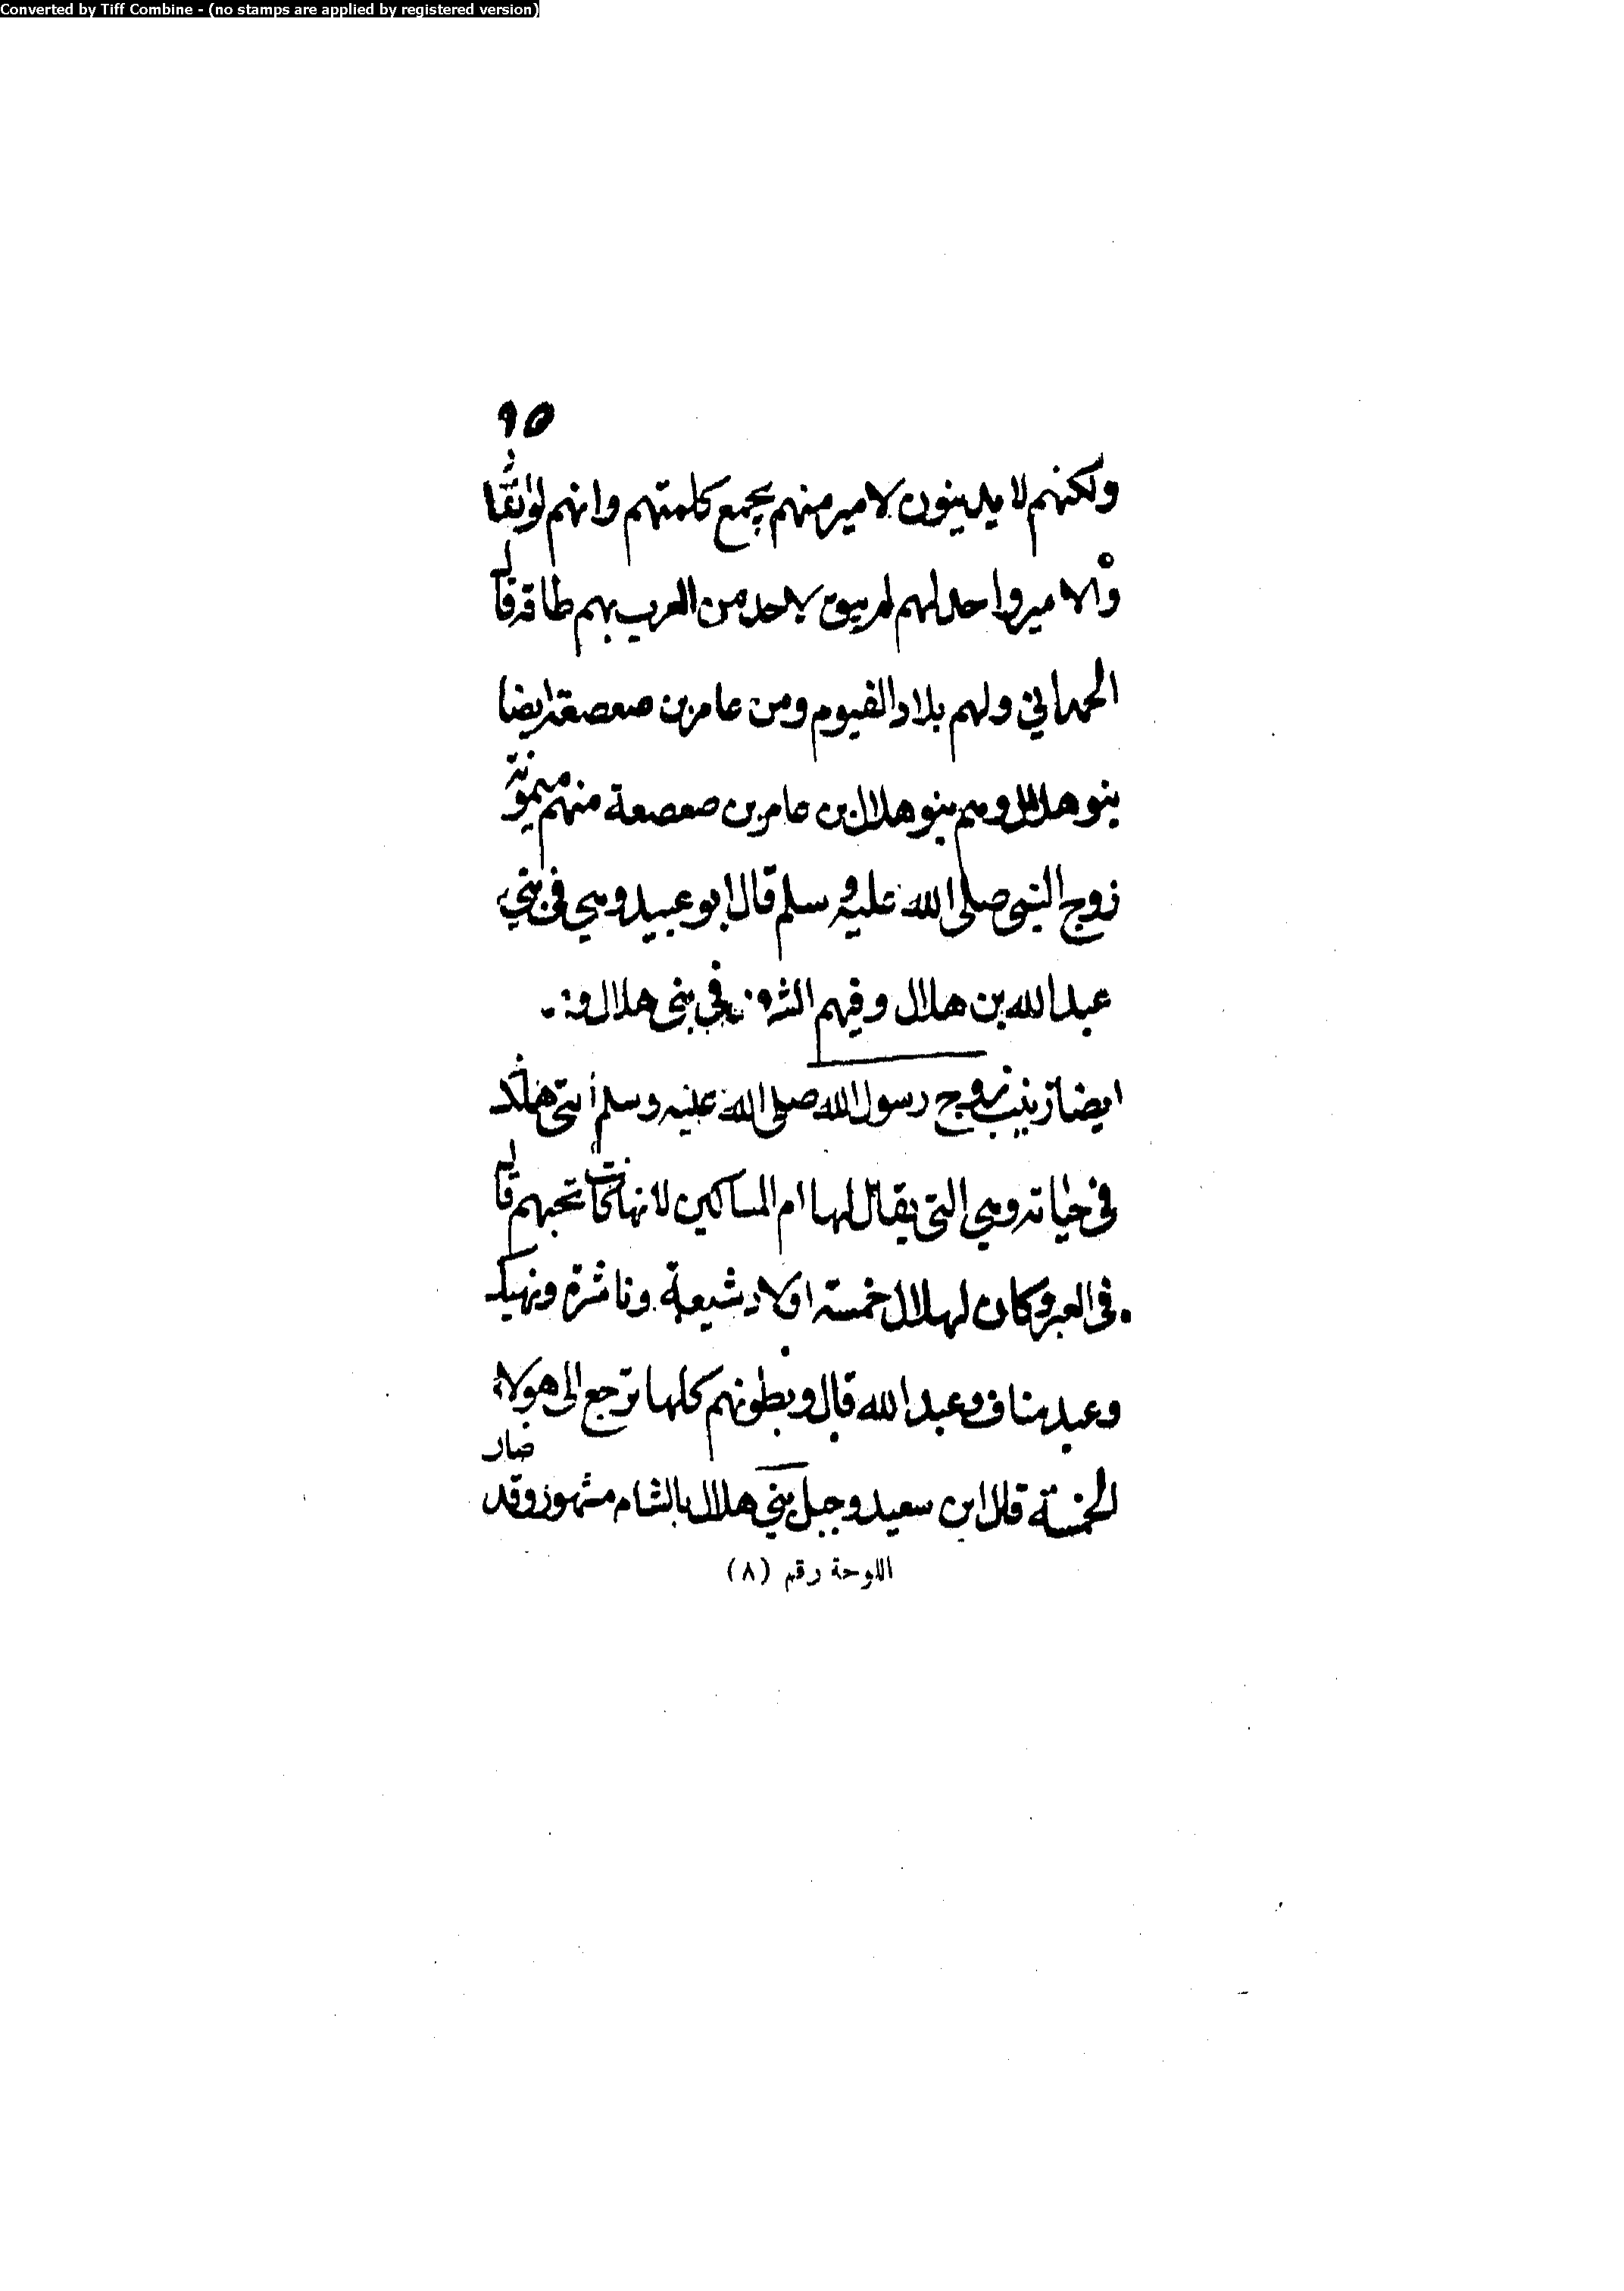 Converted by Tiff Combine - (no stamps are applied by registered version)
٩٥
ولكنهم لا يدينون لامير منهم يجمع كلمتهم وانهم لو انقا
دوا لامير واحد لهم لم يبق لاحد من العرب بهم طاقه قال
الحمداني ولهم بلاد الفيوم ومن عامر بن صعصعة ايضا
بنو هلال وهم بنو هلال بن عامر بن صعصعة منهم ميمونة
زوج النبي صلى الله عليه وسلم قال ابو عبيد وهي في بني
عبد الله بن هلال وفيهم الشرف في بني هلال
ايضا زينب زوج رسول الله صلى الله عليه وسلم التي هلكت
في حياته وهي التي يقال لها ام المساكين لانها كانت تحبهم قال
في العبر وكان لهلال خمسة اولاد شيعة وناشرة ونهيك
وعبد مناف وعبد الله قال وبطونهم كلها ترجع الى هولاء
الخمسة قال ابن سعيد وجبل بني هلال بالشام مشهور وقد صار
اللوحة رقم (٨)